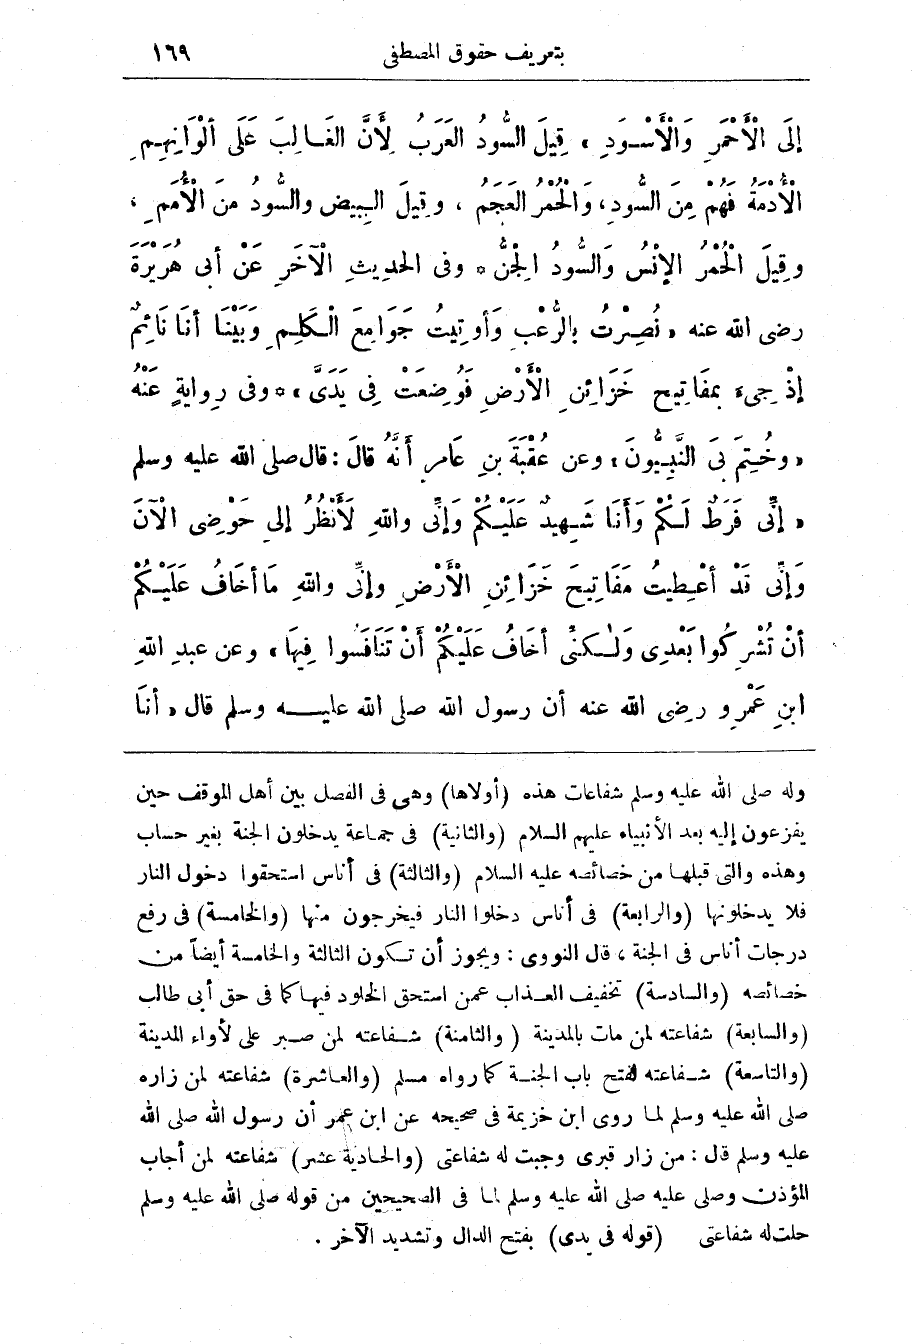 بتعريف حقوق المصطفى ١٦٩
إلَى الْأَحْمَرِ وَالْأَسْوَدِ » قِيلَ السُّودُ العَرَبُ لِأَنَّ الغَالِبَ عَلَى ألْوَانِهِمِ
الْأُدْمَةُ فَهُمْ مِنَ السُّودِ، وَالْحُمْرُ العَجَمُ ، وقِيلَ البِيضُ والسُّودُ مِنَ الْأُمَمِ ،
وقِيلَ الْحُمْرُ الإنْسُ وَالسُّودُ الجِنُّ * وفى الحَدِيثِ الْآخَرِ عَنْ أبى هُرَيْرَةَ
رضى الله عنه « نُصِرْتُ بالرُّعْبِ وَأوتِيتُ جَوَامِعَ الْكَلِمِ وَبَيْنَا أنَا نَائِمٌ
إذْ جِىءَ بمَفَاتِيحِ خَزَائِنِ الْأَرْضِ فَوُضِعَتْ فِى يَدَىَّ » * وفى رِوايةٍ عَنْهُ
« وخُتِمَ بىَ النَّبِيُّونَ » وعن عُقْبَةَ بنِ عَامِرٍ أَنَّهُ قالَ : قال صلى الله عليه وسلم
« إنِّى فَرَطٌ لَكُمْ وَأَنَا شَهِيدٌ عَلَيْكُمْ وَإنِّى واللهِ لَأَنْظُرُ إلى حَوْضِى الْآنَ
وَإنِّى قَدْ أُعْطِيتُ مَفَاتِيحَ خَزَائِنِ الْأَرْضِ وإنِّى واللهِ مَا أخَافُ عَلَيْكُمْ
أنْ تُشْرِكُوا بَعْدِى وَلٰكِنِّى أخَافُ عَلَيْكُمْ أنْ تَنَافَسُوا فِيهَا » وعن عبدِ اللهِ
ابنِ عَمْرٍو رضى الله عنه أن رسول الله صلى الله عليه وسلم قال « أنَا
وله صلى الله عليه وسلم شفاعات هذه (أولاها) وهى فى الفصل بين أهل الموقف حين
يفزعون إليه بعد الأنبياء عليهم السلام (والثانية) فى جماعة يدخلون الجنة بغير حساب
وهذه والتى قبلها من خصائصه عليه السلام (والثالثة) فى أناس استحقوا دخول النار
فلا يدخلونها (والرابعة) فى أناس دخلوا النار فيخرجون منها (والخامسة) فى رفع
درجات أناس فى الجنة ، قال النووى : ويجوز أن تكون الثالثة والخامسة أيضاً من
خصائصه (والسادسة) تخفيف العذاب عمن استحق الخلود فيها كما فى حق أبى طالب
(والسابعة) شفاعته لمن مات بالمدينة (والثامنة) شفاعته لمن صبر على لأواء المدينة
(والتاسعة) شفاعته لفتح باب الجنة كما رواه مسلم (والعاشرة) شفاعته لمن زاره
صلى الله عليه وسلم لما روى ابن خزيمة فى صحيحه عن ابن عمر أن رسول الله صلى الله
عليه وسلم قال : من زار قبرى وجبت له شفاعتى (والحادية عشر) شفاعته لمن أجاب
المؤذن وصلى عليه صلى الله عليه وسلم لما فى الصحيحين من قوله صلى الله عليه وسلم
حلت له شفاعتى (قوله فى يدى) بفتح الدال وتشديد الآخر .